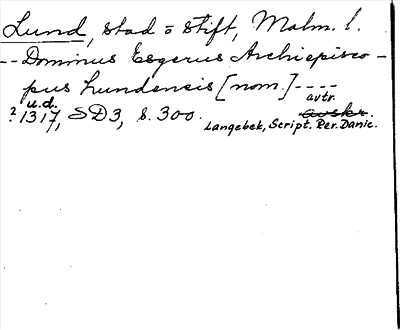 Lund, stad o stift, Malm. l.
-- Dominus Esgerus Archiepisco-
pus Lundensis [nom.] ----
u.d. avtr.
? 1317, SD3, s. 300. avskr.
Langebek, Script. Rer. Danic.